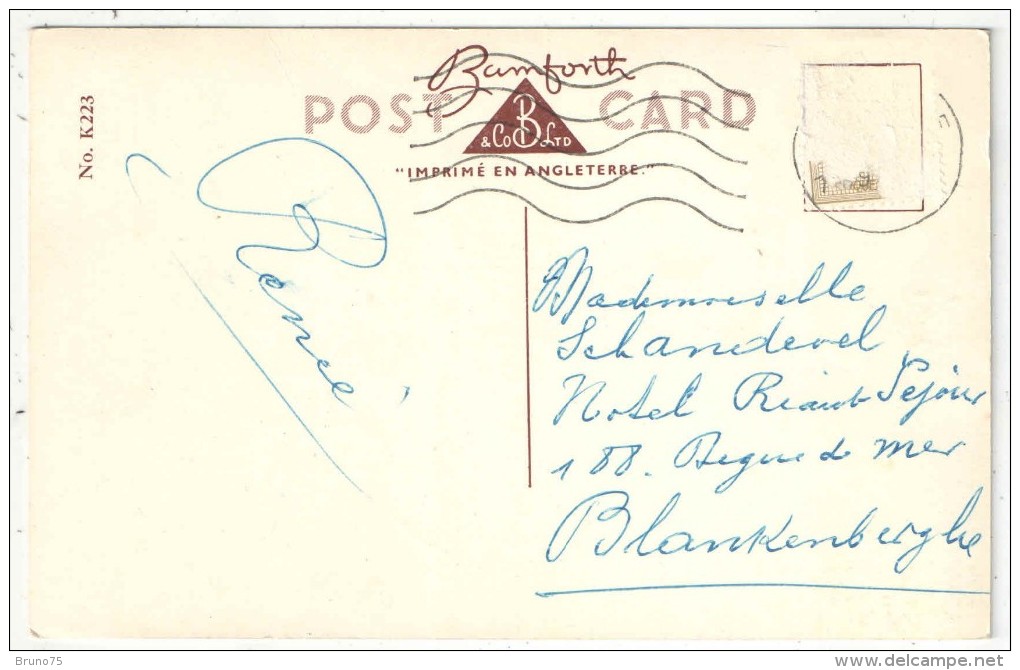 No. K223
Bamforth
POST CARD
B
& Co LTD
"IMPRIMÉ EN ANGLETERRE."
René
Mademoiselle
Schandevel
Hotel Riant Séjour
188. Digue de mer
Blankenberghe
Bruno75